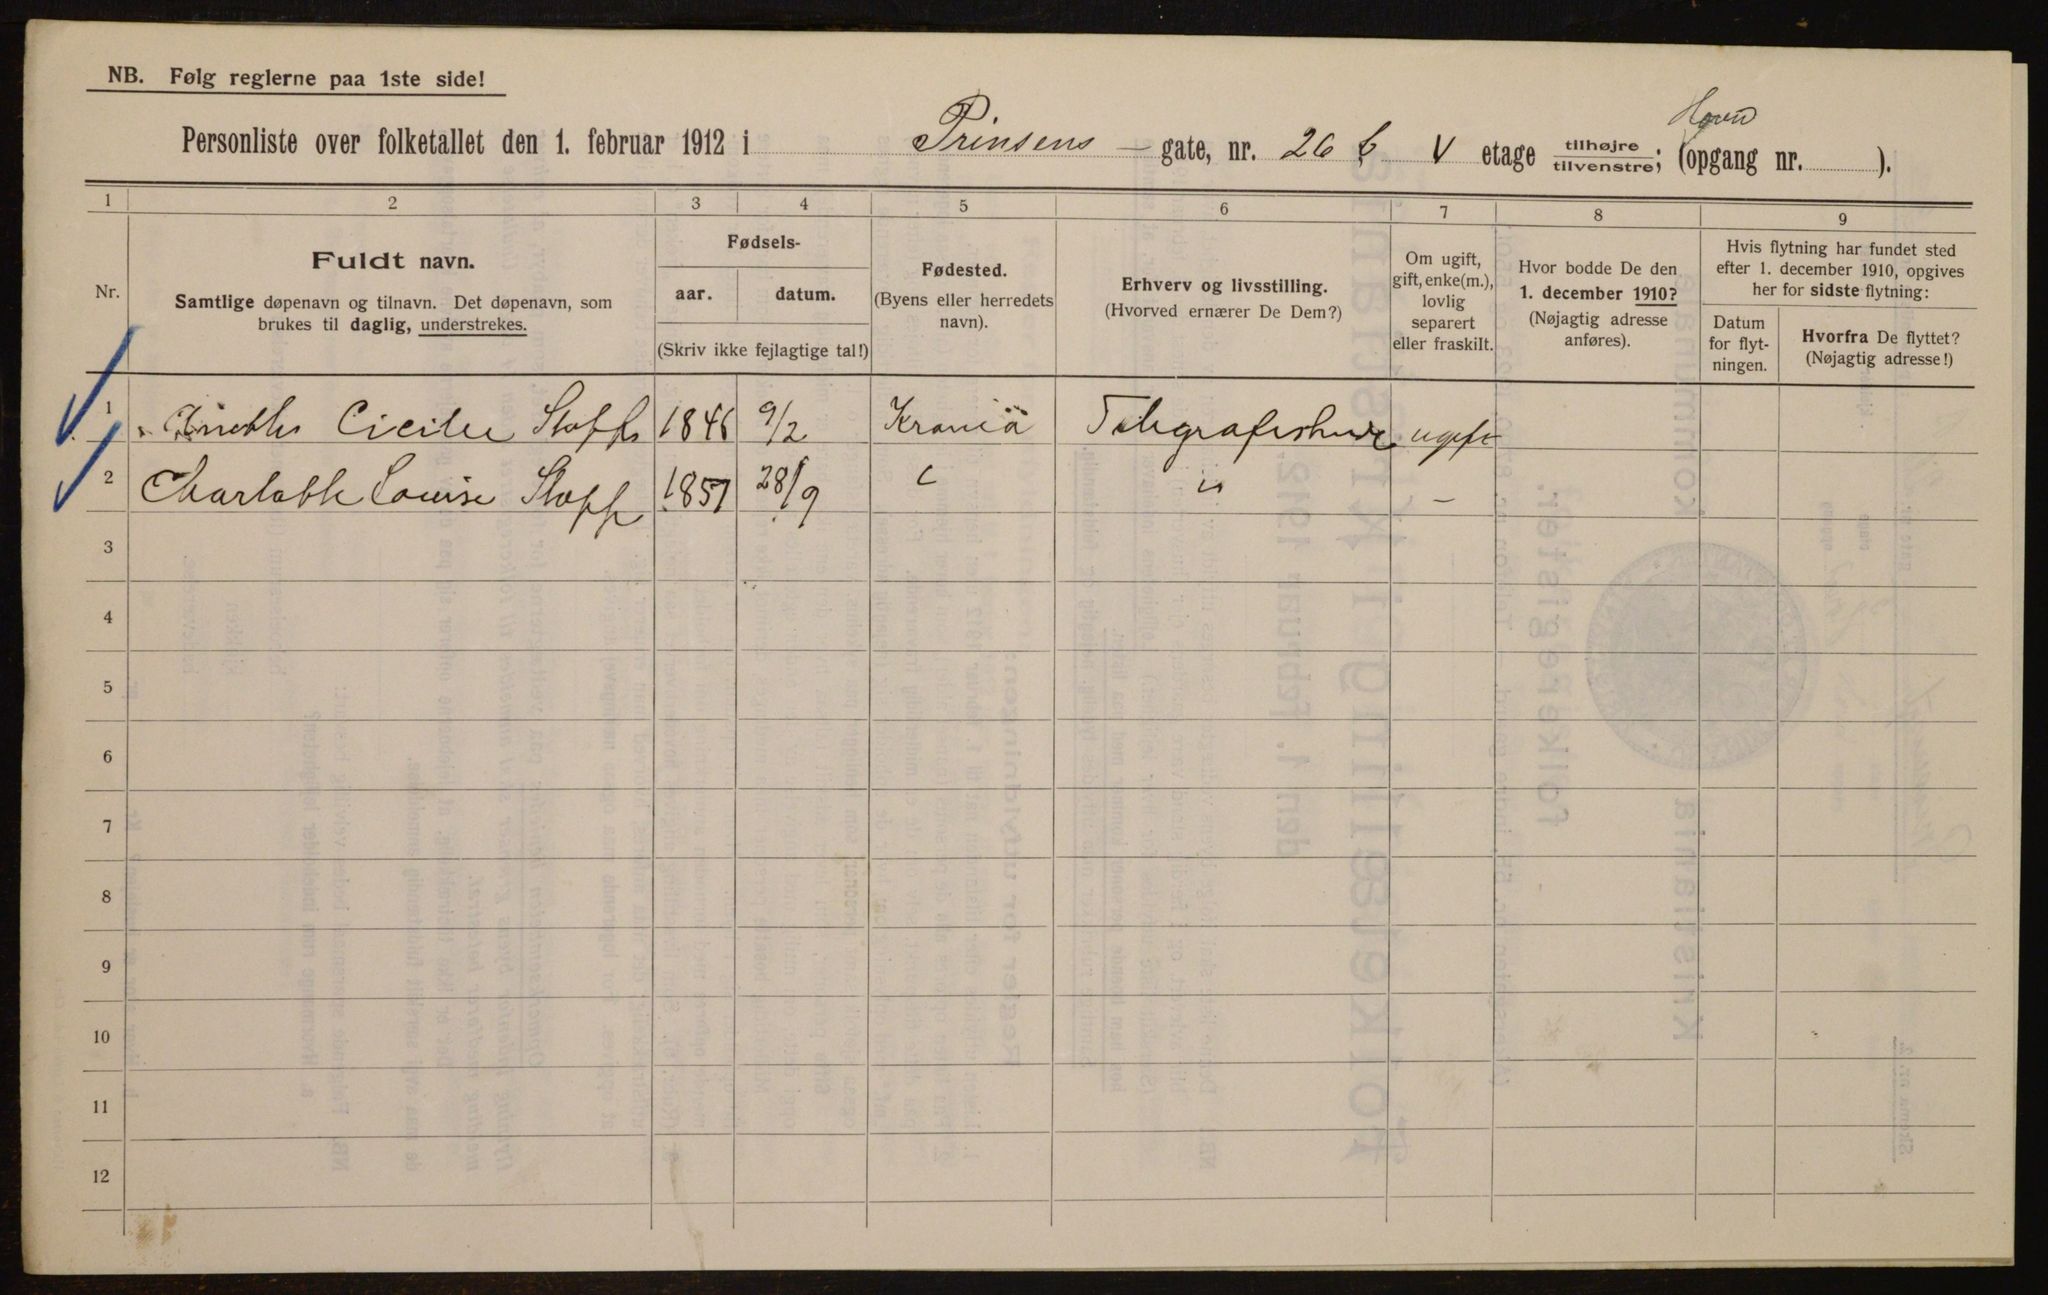 NB. Følg reglerne paa 1ste side!
Hovd
Personliste over folketallet den 1. februar 1912 i Prinsens - gate, nr. 26 b V etage tilhøjre tilvenstre; (opgang nr. ).
1 2 3 4 5 6 7 8 9
Nr.
Fuldt navn.
Samtlige døpenavn og tilnavn. Det døpenavn, som
brukes til daglig, understrekes.
Fødsels-
aar. datum.
(Skriv ikke fejlagtige tal!)
Fødested.
(Byens eller herredets
navn).
Erhverv og livsstilling.
(Hvorved ernærer De Dem?)
Om ugift,
gift, enke(m.),
lovlig
separert
eller fraskilt.
Hvor bodde De den
1. december 1910?
(Nøjagtig adresse
anføres).
Hvis flytning har fundet sted
efter 1. december 1910, opgives
her for sidste flytning:
Datum
for flyt-
ningen.
Hvorfra De flyttet?
(Nøjagtig adresse!)
1 Cicilie 1846 9/2 Kraniä ugift
2 Louise 1857 28/9 -
3
4
5
6
7
8
9
10
11
12